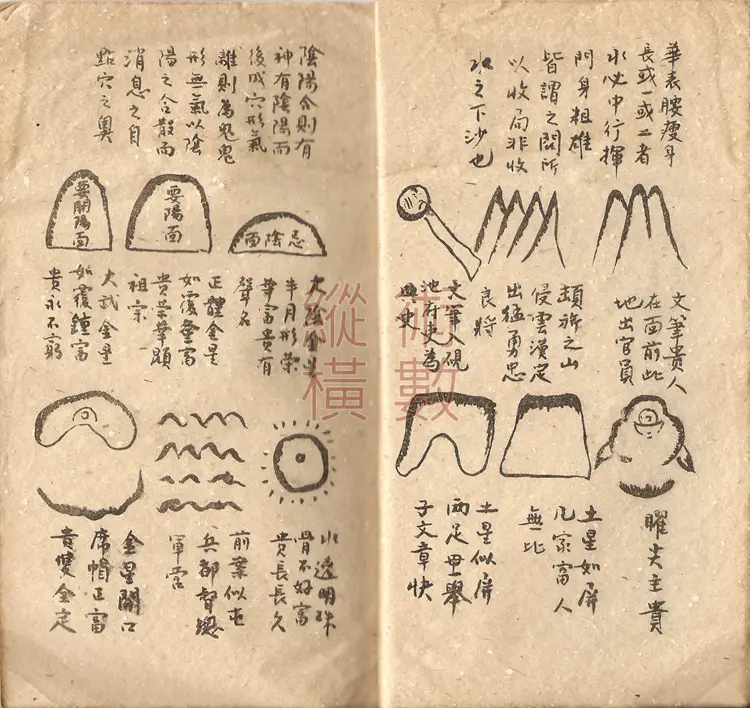 華表腰瘦身
長或一或二者
水必中行揮
門身粗雄
皆謂之關所
以收局非收
水之下沙也
文筆貴人
在面前此
地出官員
頓旂之山
侵雲漢定
出猛勇忠
良將
文筆入硯
池府吏為
典史
曜尖主貴
土星如屏
几家富人
無比
土星似屏
兩足 舉
子文章快
陰陽合則有
神有陰陽而
後成穴形氣
離則為鬼鬼
形無氣以陰
陽之合散而
消息之自
點穴之奧
忌陰面
要陽面
要開陽面
太陰金星
半月形榮
華富貴有
聲名
正體金星
如覆釜富
貴榮華顯
祖宗
太武金星
如覆鐘富
貴永不窮
水透明珠
骨不好富
貴長長久
前案似屯
兵都督總
軍営
金星開口
席帽正富
貴雙全定
術數
縱橫